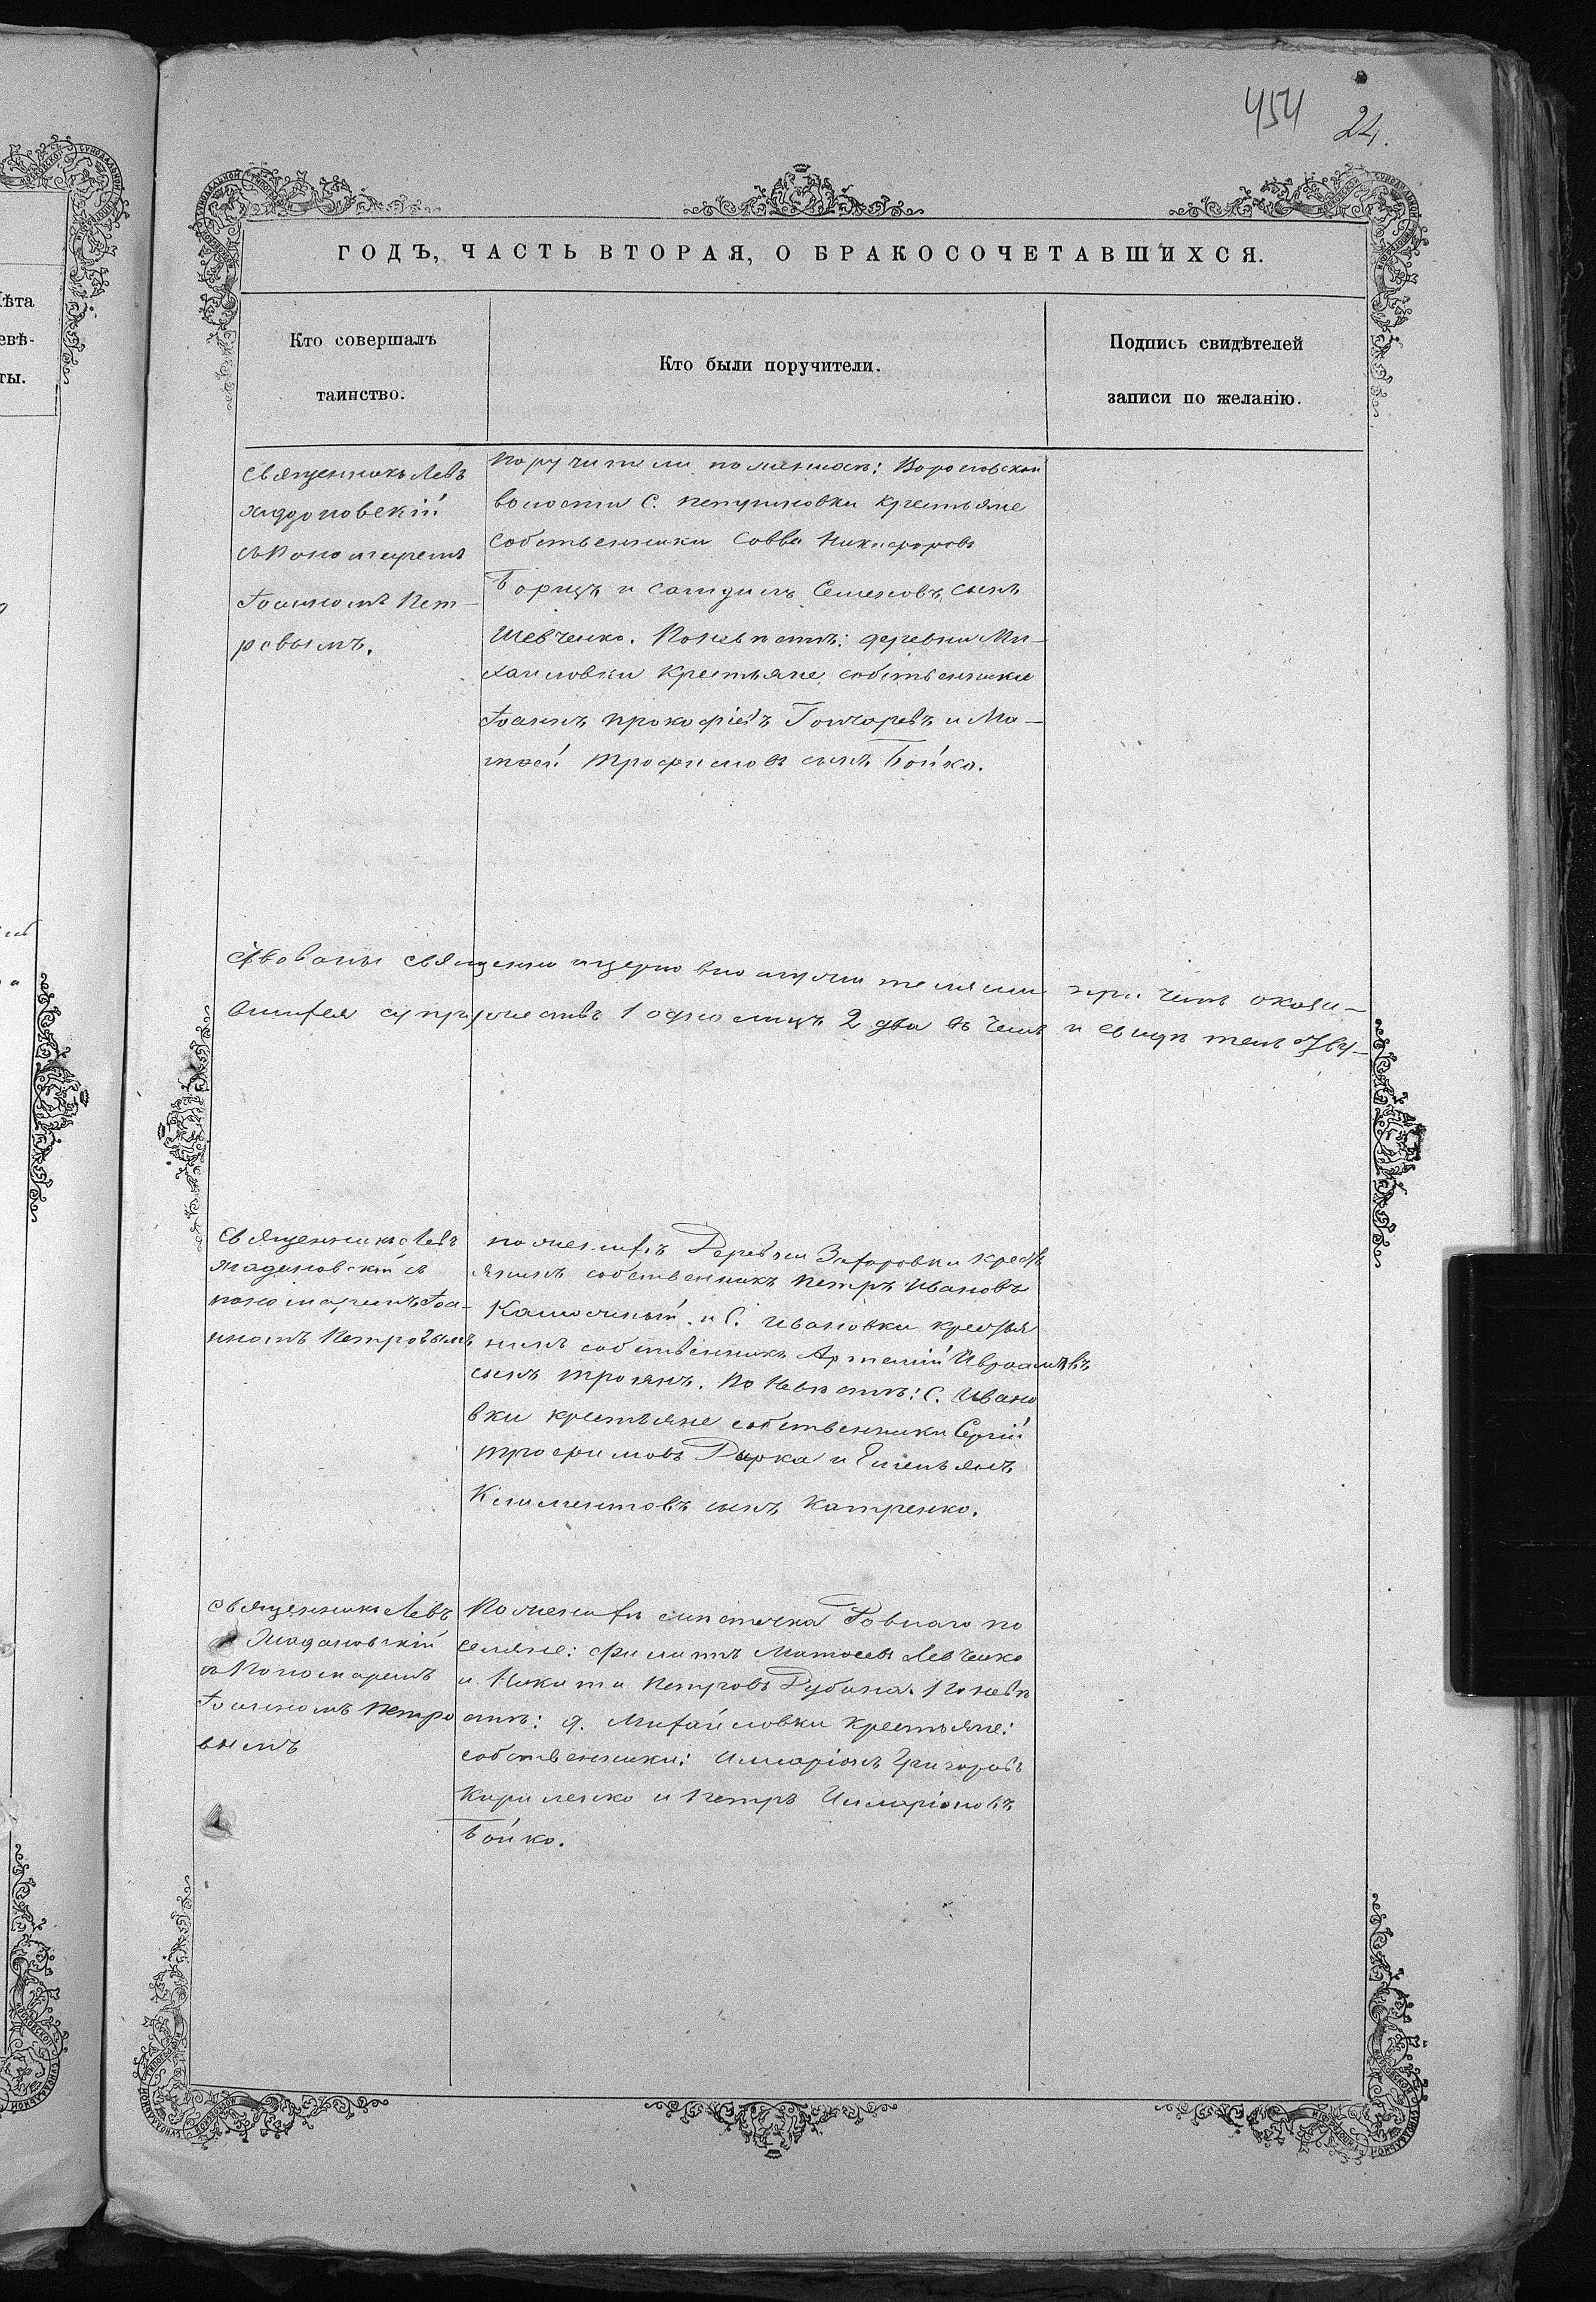 454 24.
ГОДЪ, ЧАСТЬ ВТОРАЯ, О БРАКОСОЧЕТАВШИХСЯ.
Кто совершалъ
таинство.
Кто были поручители.
Подпись свидѣтелей
записи по желанію.
Священникъ Левъ
съ Пономаремъ
Іоанномъ Пет-
ровымъ.
Поручители по женихѣ:
волости С. крестьяне
собственники Савва Никифоровъ
и Семеновъ сынъ
Шевченко. По невѣстѣ: деревни Ми-
хайловки крестьяне собственники
Іоаннъ Прокофіевъ Гончаревъ и Ма-
тфей Трофимовъ сынъ Бойко.
священно церковно служителями при чемъ оказа-
супружествъ 1 одно лицъ 2 два въ чемъ и
Священникъ Левъ
Жадановскій съ
пономаремъ Іоа-
нномъ Петровымъ
по женихѣ Деревни крестья
янинъ собственникъ Петръ Ивановъ
и С. Ивановки крестья
нинъ собственникъ Артемій
сынъ Троянъ. По невѣстѣ: С. Ивано
вки крестьяне собственники Сергій
Трофимовъ Дырка и Емельянъ
Климентовъ сынъ Катренко.
Священникъ Левъ
Жадановскій
съ Пономаремъ
Іоанномъ Петро
вымъ
По женихѣ мѣстечка Ровнаго по
селяне: Филиппъ Матфеевъ Левченко
и Никита Петровъ Рубана. По невѣ
стѣ: д. Михайловки крестьяне:
собственники: Илларіонъ Григорьевъ
Кириленко и Петръ Илларіоновъ
Бойко.